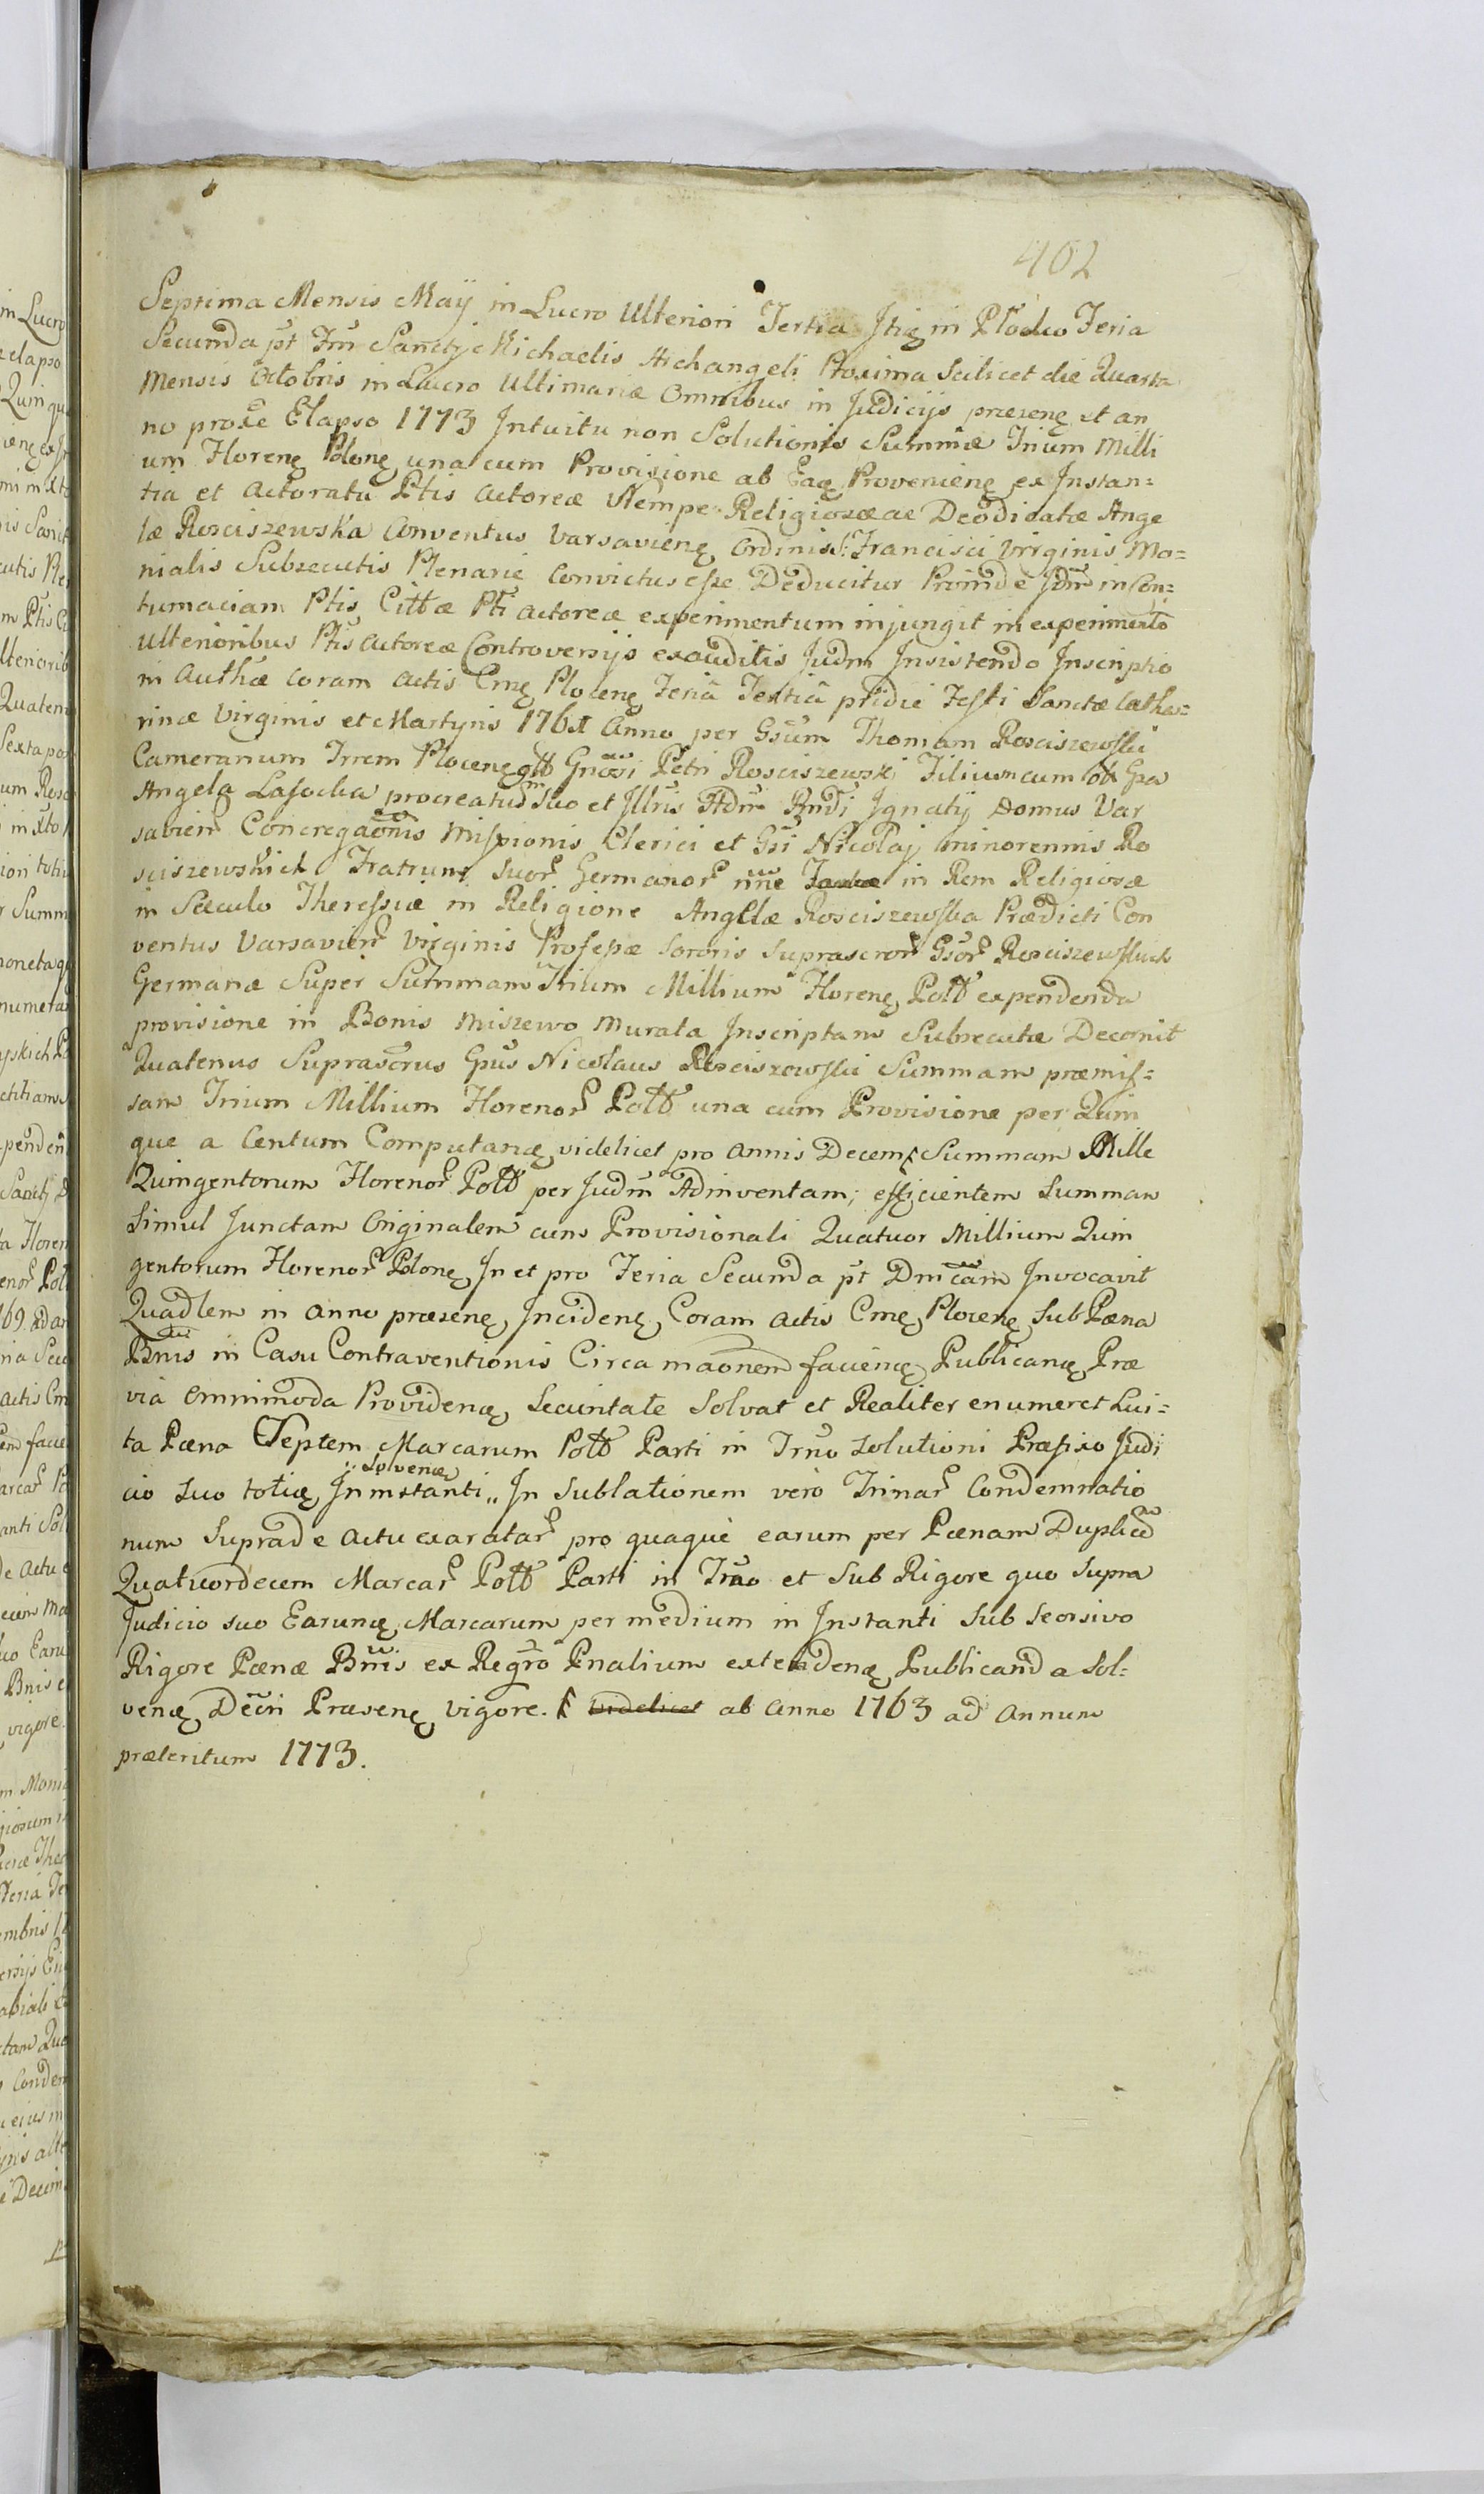 402
Septima Mensis Maij in Lucro Ulteriori Tertia Itię in Płocko Feria
Secunda pt Fm Sanctj Michaelis Archangeli Proxima Scilicet die Quarta
Mensis Octobris in Lucro Ultimariæ Omnibus in Judicijs præsenę et an
no proxe Elapso 1773 Intuitu non Solutionis Summæ Trium Milli
um Florenę Polonę una cum Provisione ab Eaę Provenienę ex Instan=
tia et Actoratu Ptis Actoreæ Nempe Religiosæ ac Deodicatæ Ange
læ Rosciszewska Conventus Varsavienę Ordinis S. Francisci Virginis Mo=
nialis Subsecutis Plenarie Convictus esse Deducitur Proinde Jdm in Con=
tumaciam Ptis Cittæ Pti Actoreæ experimentum injungit in experimento
Ulterioribus Ptis Actoreæ Controversijs exauditis Judm Insistendo Inscriptio
ni Authæ Coram Actis Cmę Plocenę Feriâ Tertiâ pridie Festi Sanctæ Catha=
rinæ Virginis et Martyris 1761 Anno per Gsum Thomam Rosciszewski
Camerarium Trrem Plocenę ollț Gnosi Petri Rosciszewski Filium cum olț Gsa
Angela Lasocka procreatum Suo et Illris Adm Rndi Ignatij Domus Var
savien Congregaonis Missionis Clerici et Gsi Nicolaj minorennis Ro
sciszewskich Fratrum Suor Germanor nne Factæ in Rem Religiosæ
in Sæculo Theressiæ in Religione Angelæ Rosciszewska Prædicti Con
ventus Varsavien Virginis Professæ Sororis Suprascror Gsor Rosciszewskich
Germanæ Super Summam Trium Millium Florenę Poltt expendenda
provisione in Bonis Miszewo Murata Inscriptam Subsecutæ Decernit
Quatenus Suprascrus Gsus Nicolaus Rosciszewski Summam præmis=
sam Trium Millium Florenor Poltt una cum Provisione per Quin
que a Centum Computanę videlicet pro Annis Decem Summam Mille
Quingentorum Florenor Poltt per Judm Adinventam; efficientem Summam
Simul Junctam Originalem cum Provisionali Quatuor Millium Quin
gentorum Florenor Polonę In et pro Feria Secunda pt Dmcam Invocavit
Quadlem in Anno præsenę Incidenę Coram Actis Cmę Plocenę Sub Pæna
Bnis in Casu Contraventionis Circa maonem facienę Publicanę Præ
viâ Omnimoda Providenę Securitate Solvat et Realiter enumeret Lui=
ta Pæna Septem Marcarum Poltt Parti in Trno Solutioni Præfixo Judi
Solvenę
cio Suo totię In instanti „ In Sublationem vero Trinar Condemnatio
num Suprad e Actu exaratar pro quaque earum per Pænam Duplicem
Quatuordecem Marcar Poltt Parti in Trno et Sub Rigore quo Supra
Judicio suo Earumę Marcarum per medium in Instanti Sub Seorsivo
Rigore Pænæ Bnis ex Regro Pnalium extendenę Publicanda Sol=
venę Decri Præsenę Vigore. videlicet ab Anno 1763 ad Annum
præteritum 1773.